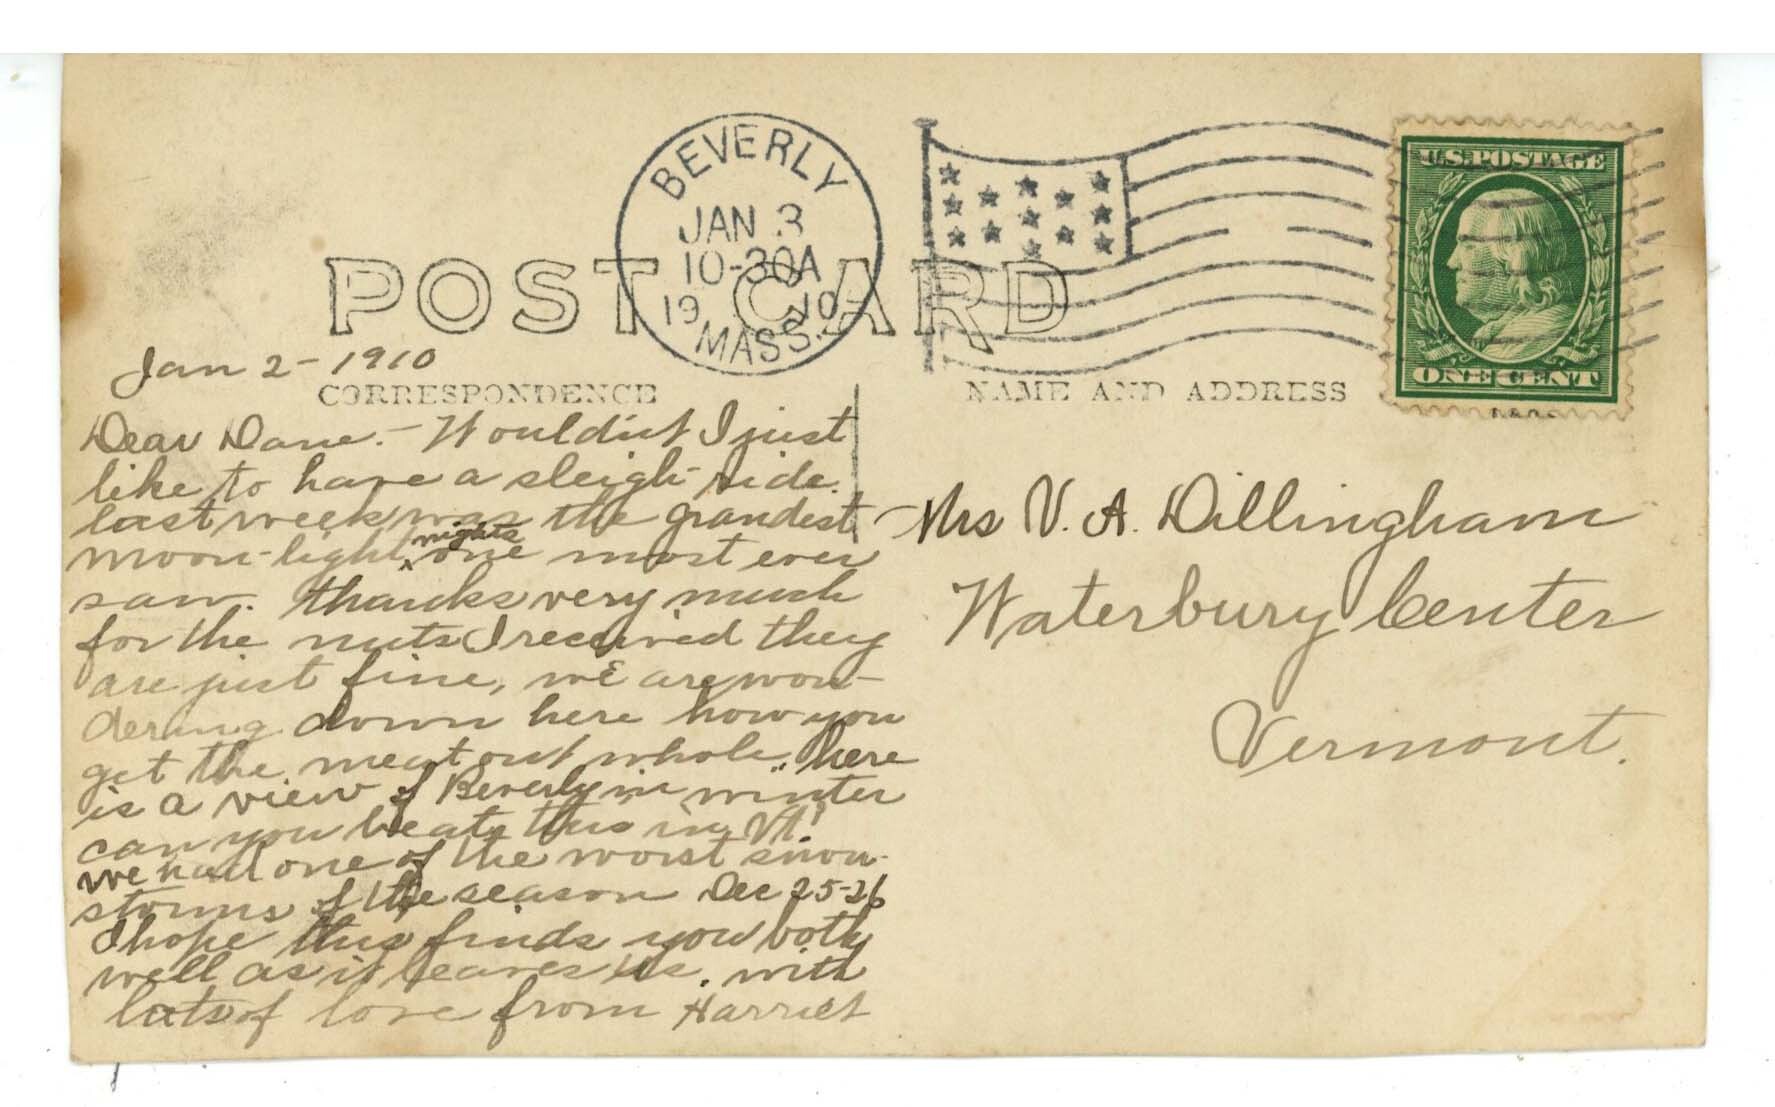 BEVERLY
JAN 3
10-30A
19 10
MASS.
U.S. POSTAGE
ONE CENT
POST CARD
Jan 2 - 1910
CORRESPONDENCE
NAME AND ADDRESS
Dear Dane. - Wouldnt I just
like to have a sleigh-ride.
last week was the grandest
moon-light nights one most ever
saw. thanks very much
for the nuts I received they
are just fine, we are won-
dering down here how you
get the meat out whole. here
is a view of Beverly in winter
can you beat this in Vt?
we had one of the worst snow-
storms of the season Dec 25-26
I hope this finds you both
well as it leaves us. with
lots of love from Harriet
Mrs V. A. Dillingham
Waterbury Center
Vermont.